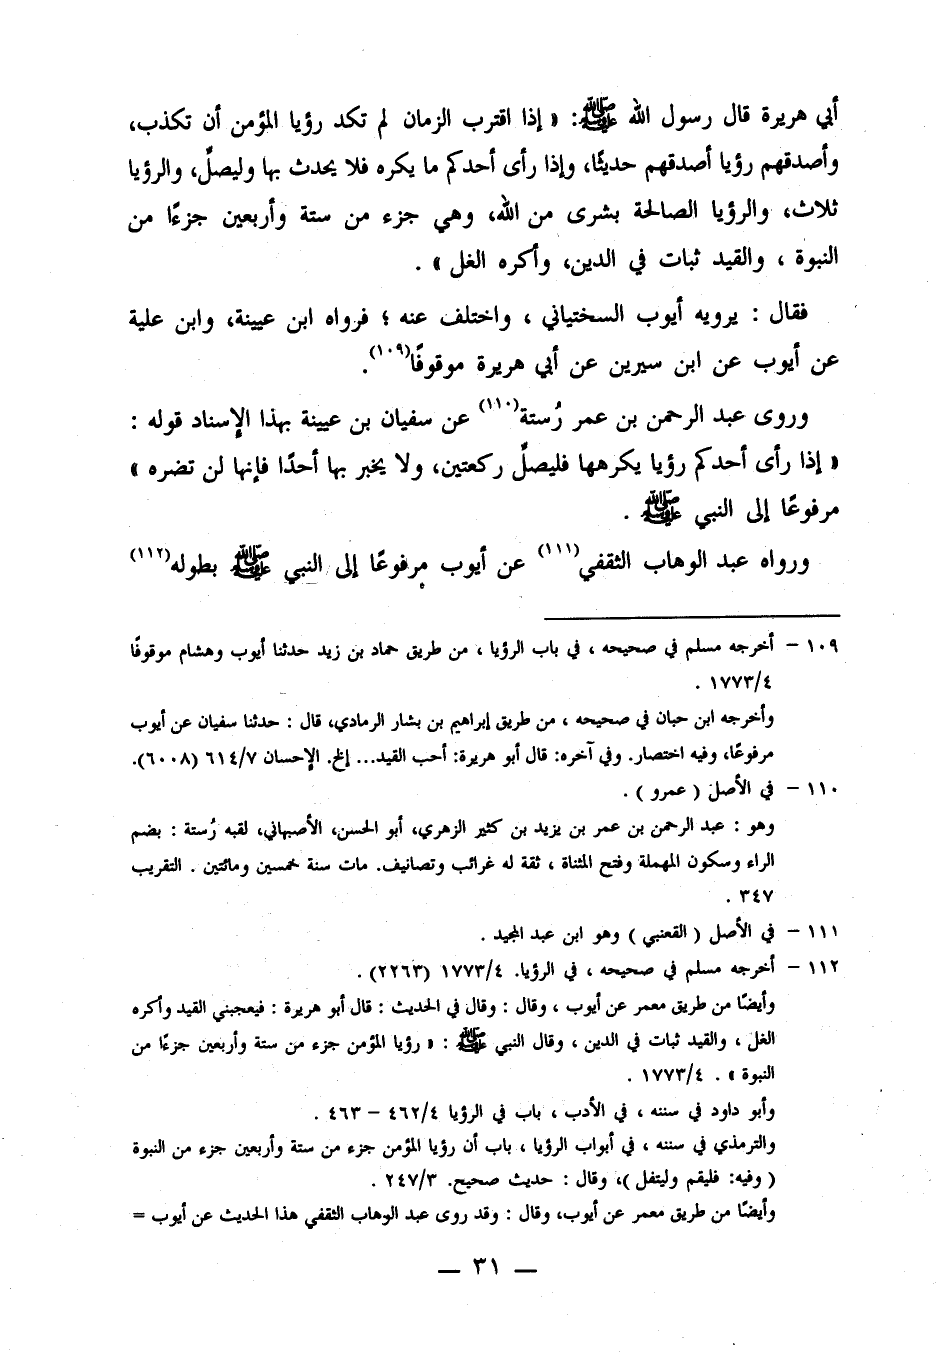 أبي هريرة قال رسول الله ﷺ: « إذا اقترب الزمان لم تكد رؤيا المؤمن أن تكذب،
وأصدقهم رؤيا أصدقهم حديثًا، وإذا رأى أحدكم ما يكره فلا يحدث بها وليصلِّ، والرؤيا
ثلاث، والرؤيا الصالحة بشرى من الله، وهي جزء من ستة وأربعين جزءًا من
النبوة ، والقيد ثبات في الدين، وأكره الغل » .
فقال : يرويه أيوب السختياني ، واختلف عنه ؛ فرواه ابن عيينة، وابن علية
عن أيوب عن ابن سيرين عن أبي هريرة موقوفًا(١٠٩).
وروى عبد الرحمن بن عمر رُستة(١١٠) عن سفيان بن عيينة بهذا الإسناد قوله :
« إذا رأى أحدكم رؤيا يكرهها فليصلِّ ركعتين، ولا يخبر بها أحدًا فإنها لن تضره »
مرفوعًا إلى النبي ﷺ .
ورواه عبد الوهاب الثقفي(١١١) عن أيوب مرفوعًا إلى النبي ﷺ بطوله(١١٢)
١٠٩ – أخرجه مسلم في صحيحه ، في باب الرؤيا ، من طريق حماد بن زيد حدثنا أيوب وهشام موقوفًا
١٧٧٣/٤ .
وأخرجه ابن حبان في صحيحه ، من طريق إبراهيم بن بشار الرمادي، قال : حدثنا سفيان عن أيوب
مرفوعًا، وفيه اختصار. وفي آخره: قال أبو هريرة: أحب القيد... إلخ. الإحسان ٦١٤/٧ (٦٠٠٨).
١١٠ – في الأصل ( عمرو ) .
وهو : عبد الرحمن بن عمر بن يزيد بن كثير الزهري، أبو الحسن، الأصبهاني، لقبه رُستة : بضم
الراء وسكون المهملة وفتح المثناة ، ثقة له غرائب وتصانيف. مات سنة خمسين ومائتين . التقريب
٣٤٧ .
١١١ – في الأصل ( القعنبي ) وهو ابن عبد المجيد .
١١٢ – أخرجه مسلم في صحيحه ، في الرؤيا. ١٧٧٣/٤ (٢٢٦٣) .
وأيضًا من طريق معمر عن أيوب ، وقال : وقال في الحديث : قال أبو هريرة : فيعجبني القيد وأكره
الغل ، والقيد ثبات في الدين ، وقال النبي ﷺ : « رؤيا المؤمن جزء من ستة وأربعين جزءًا من
النبوة » . ١٧٧٣/٤ .
وأبو داود في سننه ، في الأدب ، باب في الرؤيا ٤٦٢/٤ – ٤٦٣ .
والترمذي في سننه ، في أبواب الرؤيا ، باب أن رؤيا المؤمن جزء من ستة وأربعين جزء من النبوة
( وفيه: فليقم وليتفل )، وقال : حديث صحيح. ٢٤٧/٣ .
وأيضًا من طريق معمر عن أيوب، وقال : وقد روى عبد الوهاب الثقفي هذا الحديث عن أيوب =
— ٣١ —